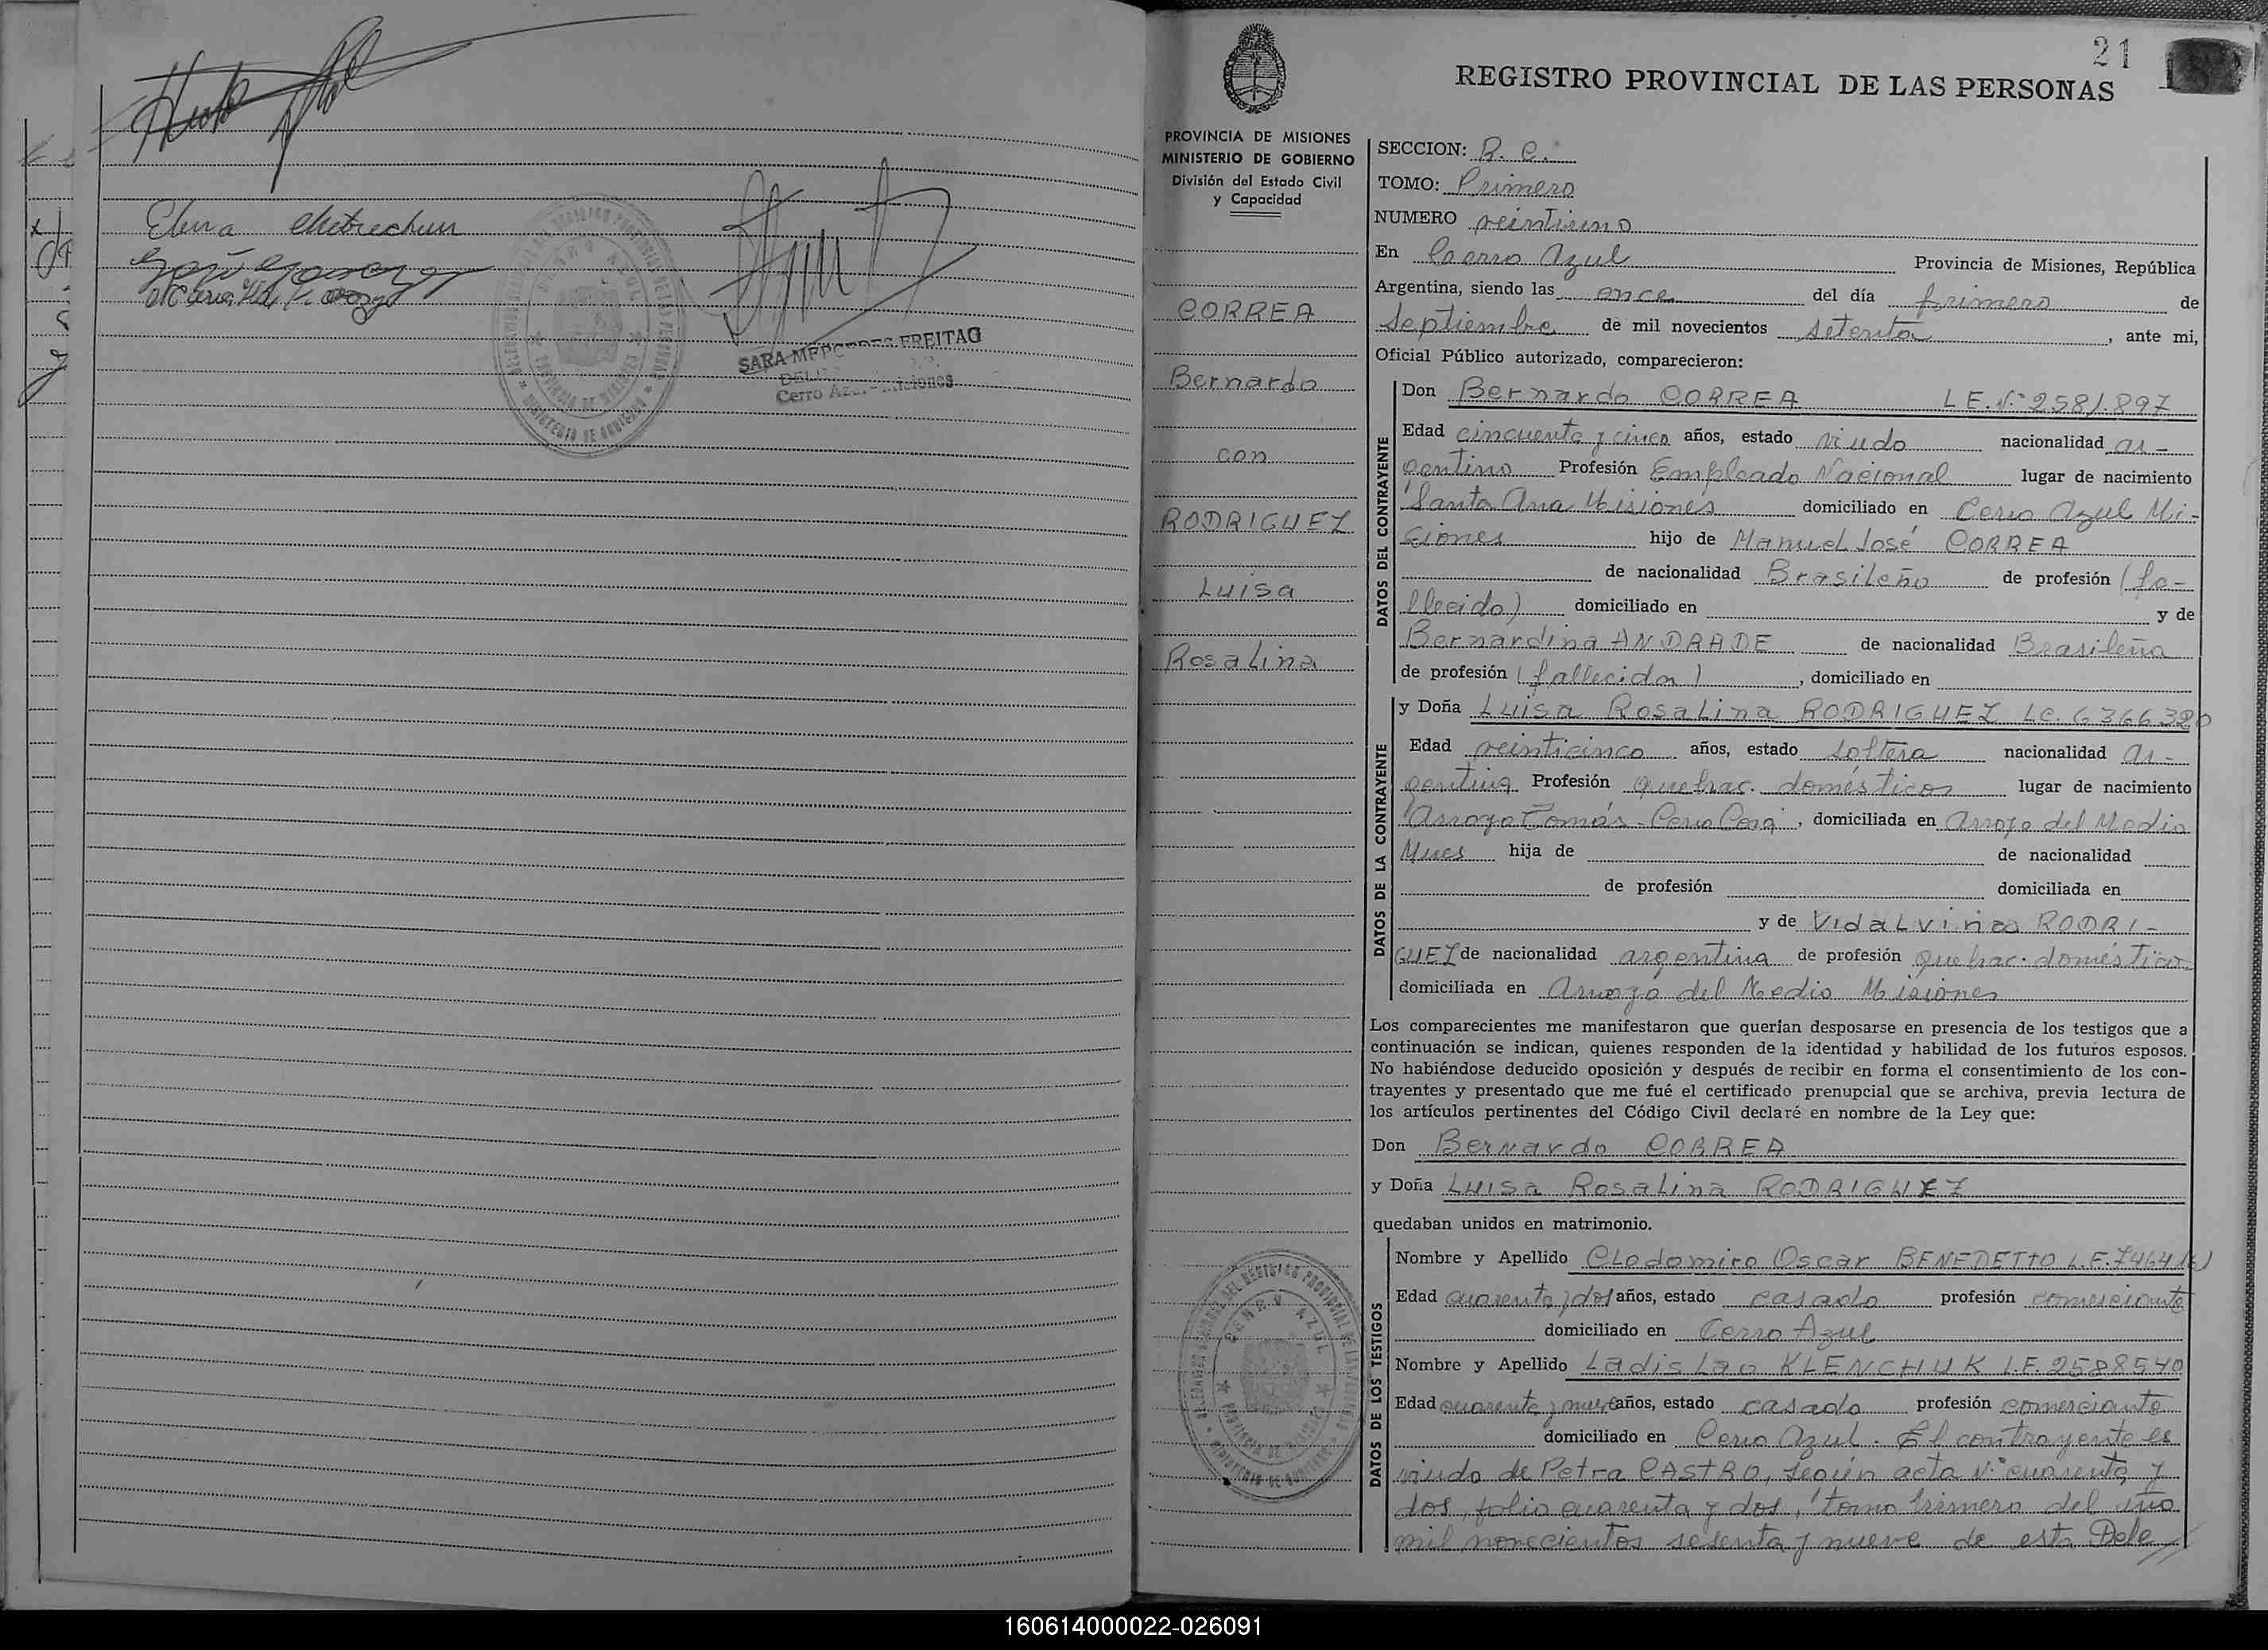 Elena
SARA MERCEDES FREITAG
Cerro Azul - Misiones
21
REGISTRO PROVINCIAL DE LAS PERSONAS
PROVINCIA DE MISIONES
MINISTERIO DE GOBIERNO
División del Estado Civil
y Capacidad
CORREA
Bernardo
con
RODRIGUEZ
Luisa
Rosalina
SECCION: R. C.
TOMO: Primero
NUMERO veintiuno
En Cerro Azul Provincia de Misiones, República
Argentina, siendo las once del día primero de
Septiembre de mil novecientos setenta, ante mi,
Oficial Público autorizado, comparecieron:
DATOS DEL CONTRAYENTE
Don Bernardo CORREA L E. N.º 2581.897
Edad cincuenta y cinco años, estado viudo nacionalidad ar-
gentino Profesión Empleado Nacional lugar de nacimiento
Santa Ana Misiones domiciliado en Cerro Azul Mi-
ciones hijo de Manuel José CORREA
de nacionalidad Brasileño de profesión (fa-
llecido) domiciliado en y de
Bernardina ANDRADE de nacionalidad Brasileña
de profesión (fallecida), domiciliado en
DATOS DE LA CONTRAYENTE
y Doña Luisa Rosalina RODRIGUEZ LC. 6366320
Edad veinticinco años, estado soltera nacionalidad ar-
gentina Profesión quehac. domésticos lugar de nacimiento
Arroyo Tomás - Cerro Corá, domiciliada en Arroyo del Medio
Mnes hija de de nacionalidad
de profesión domiciliada en
y de Vidalvina RODRI-
GUEZ de nacionalidad argentina de profesión quehac. domésticos
domiciliada en Arroyo del Medio Misiones
Los comparecientes me manifestaron que querían desposarse en presencia de los testigos que a
continuación se indican, quienes responden de la identidad y habilidad de los futuros esposos.
No habiéndose deducido oposición y después de recibir en forma el consentimiento de los con-
trayentes y presentado que me fué el certificado prenupcial que se archiva, previa lectura de
los artículos pertinentes del Código Civil declaré en nombre de la Ley que:
Don Bernardo CORREA
y Doña Luisa Rosalina RODRIGUEZ
quedaban unidos en matrimonio.
DATOS DE LOS TESTIGOS
Nombre y Apellido Clodomiro Oscar BENEDETTO L.E.
Edad cuarenta y dos años, estado casado profesión comerciante
domiciliado en Cerro Azul
Nombre y Apellido Ladislao KLENCHUK L.E. 2588540
Edad cuarenta y nueve años, estado casado profesión comerciante
domiciliado en Cerro Azul. El contrayente es
viudo de Petra CASTRO, según acta N.º cuarenta y
dos, folio cuarenta y dos, tomo primero del año
mil novecientos sesenta y nueve de esta Dele//
160614000022-026091